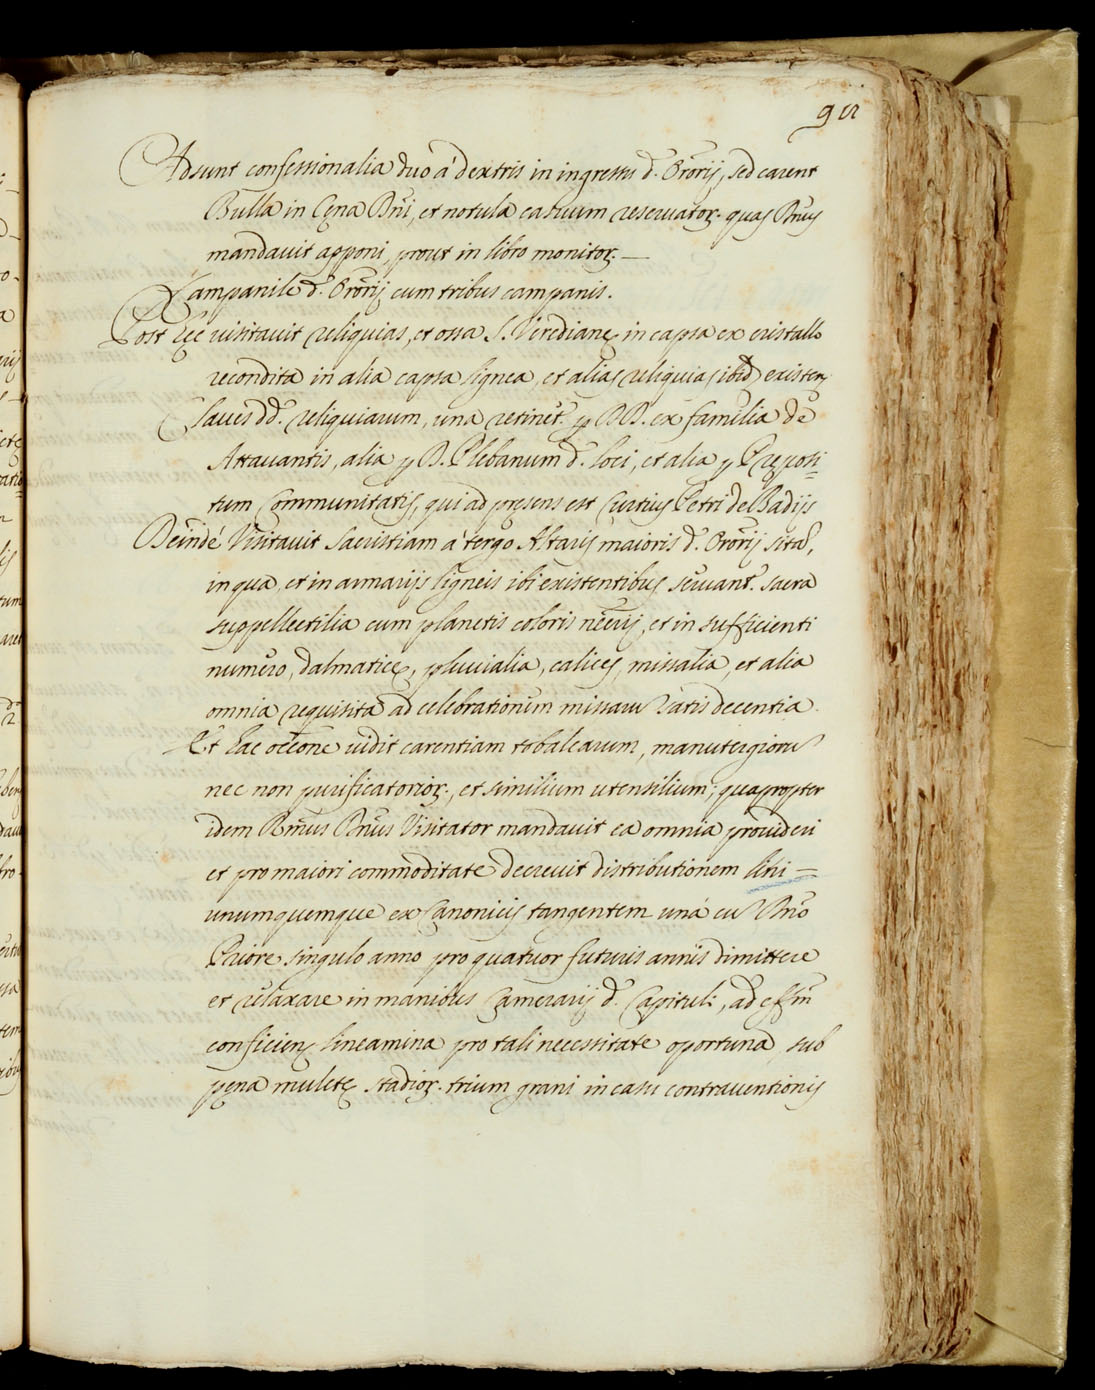 92
Adsunt confessionalia duo à dextris in ingressu d. Ororij, sed carent
Bulla in Cęna Dni, et notula casuum reservator. quas Dnus
mandavit apponi, prout in libro monitor. —
Campanile d. Ororij cum tribus campanis.
Post hęc visitavit reliquias, et ossa S. Veredianę in capsa ex cristallo
recondita in alia capsa lignea, et alias reliquias ibid existen
Claves dd. reliquiarum, una retinet. p DD. ex familia de
Attavantis, alia p D. Plebanum d. loci, et alia p Preposi=
tum Communitatis, qui ad presens est Curtius Petri de Badijs
Deindé Visitavit Sacristiam à tergo Altaris maioris d. Ororij sita,
in qua, et in armarijs ligneis ibi existentibus servant. sacra
suppellectilia cum planetis coloris nečrij, et in sufficienti
numero, dalmaticę, pluvialia, calices, missalia, et alia
omnia requisita ad celebrationem missaru satis decentia.
Et hac occone vidit carentiam tobalearum, manutergioru
nec non purificatorior., et similium utensilium; quapropter
idem Rmus Dnus Visitator mandavit ea omnia provideri
et pro maiori commoditate decrevit distributionem lini =
unumquemque ex Canonicis tangentem unà cu Dno
Priore singulo anno pro quatuor futuris annis dimittere
et relaxare in manibus Camerarij d. Capituli, ad effm
conficien lineamina pro tali necessitate oportuna, sub
pęna mulctę stadior. trium grani in casu contraventionis